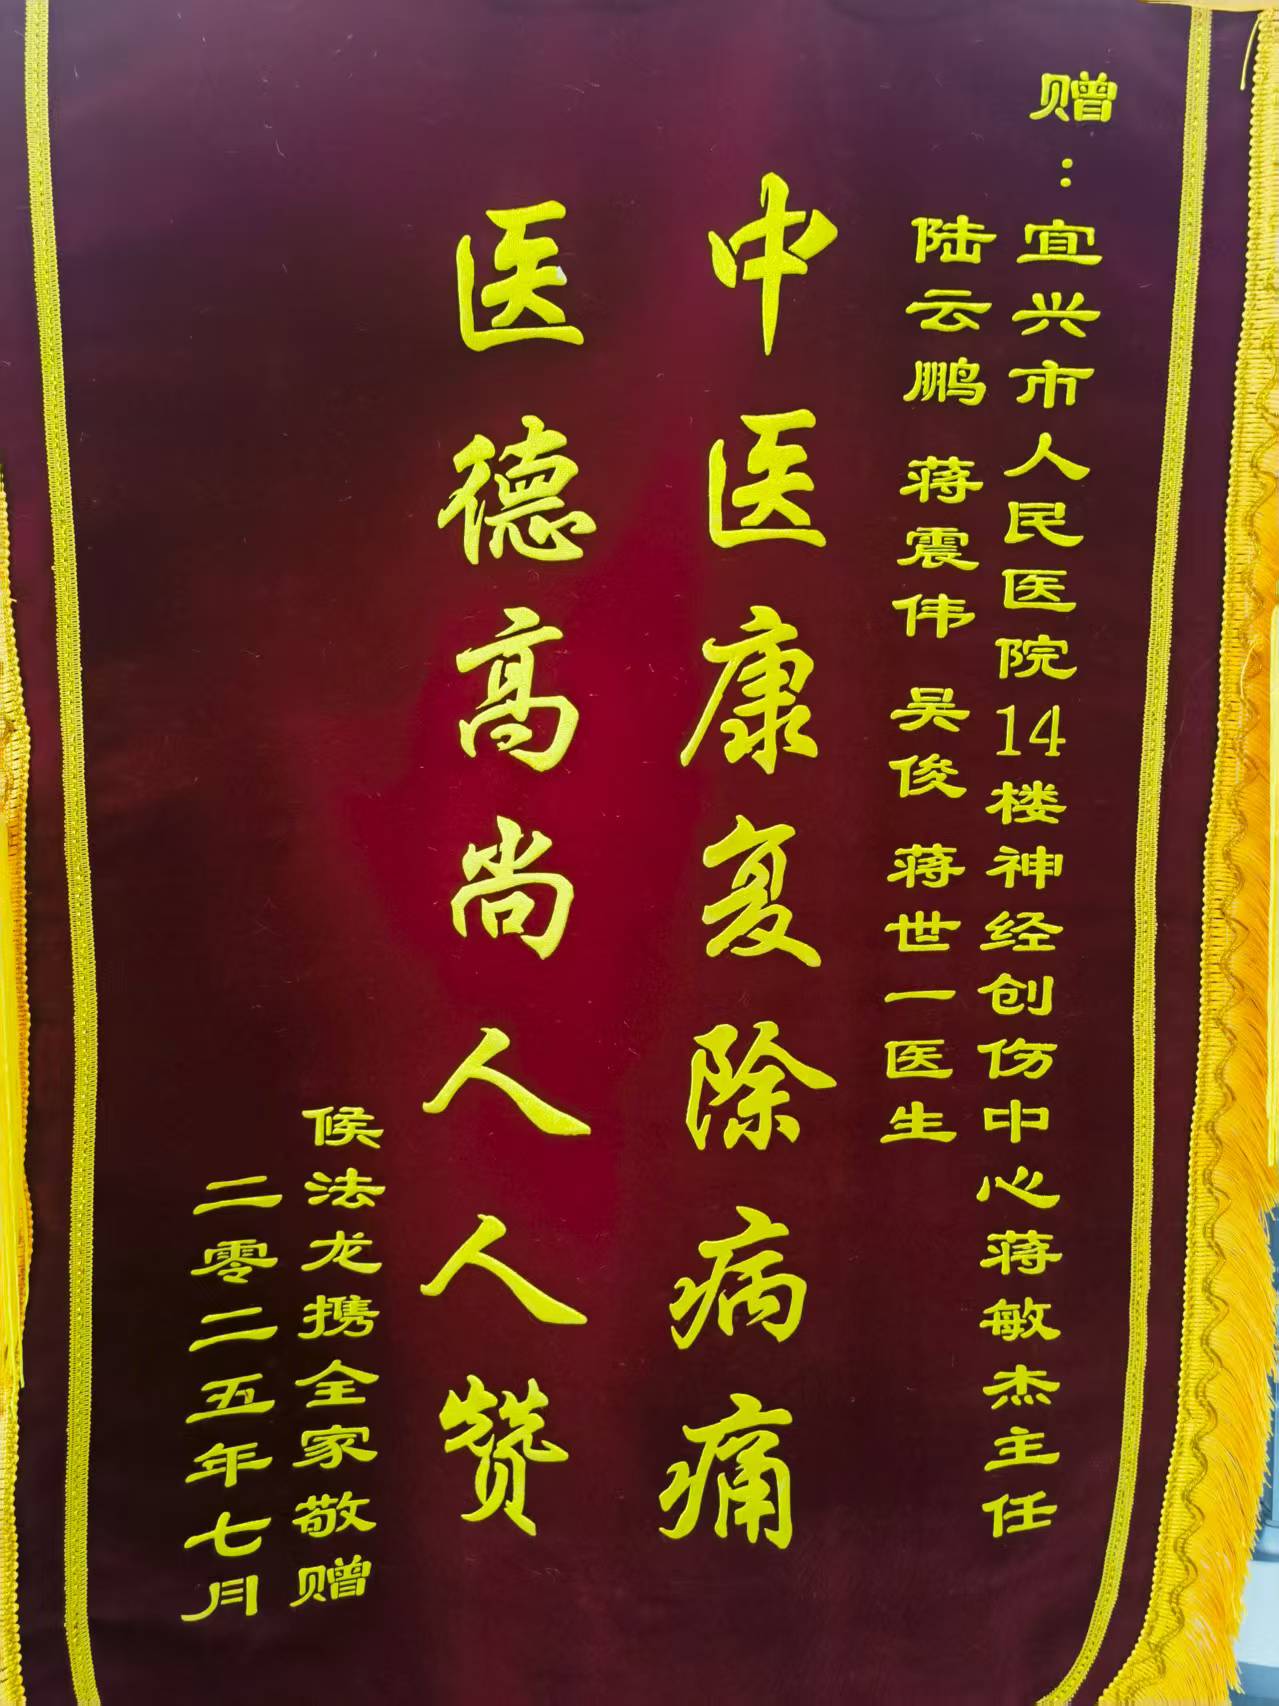 赠：宜兴市人民医院14楼神经创伤中心蒋敏杰主任
陆云鹏 蒋震伟 吴俊 蒋世一医生
中医康复除病痛
医德高尚人人赞
候法龙携全家敬赠
二零二五年七月